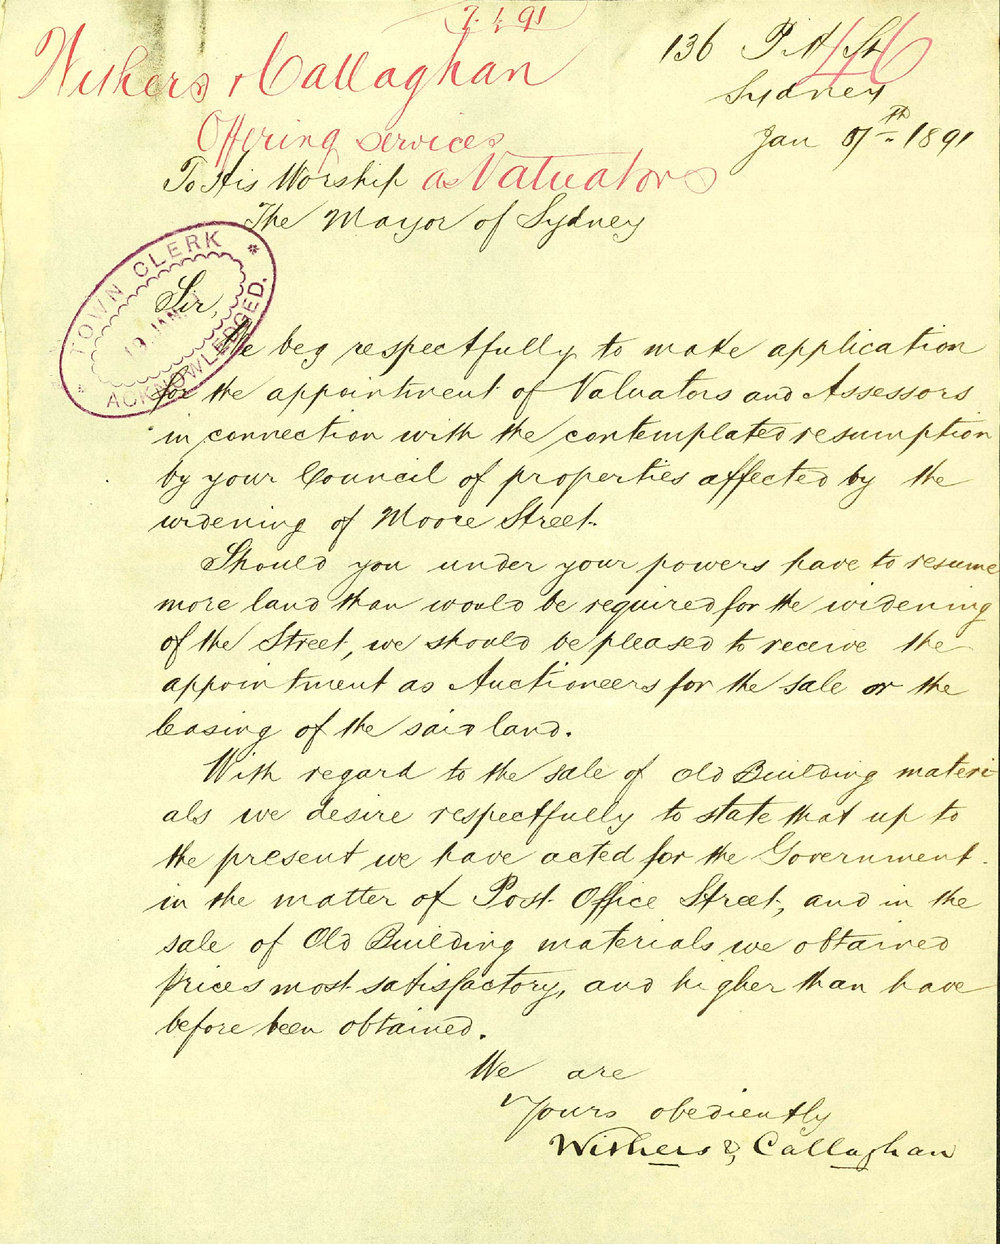 7. 1. 91
46
Withers & Callaghan
Offering services
as Valuators
136 Pitt St
Sydney
Jan 7th 1891
To His Worship
The Mayor of Sydney
TOWN CLERK
19 JAN
ACKNOWLEDGED.
Sir,
We beg respectfully to make application
for the appointment of Valuators and Assessors
in connection with the contemplated resumption
by your Council of properties affected by the
widening of Moore Street.
Should you under your powers have to resume
more land than would be required for the widening
of the Street, we should be pleased to receive the
appointment as Auctioneers for the sale or the
leasing of the said land.
With regard to the sale of Old Building materi-
als we desire respectfully to state that up to
the present we have acted for the Government
in the matter of Post Office Street, and in the
sale of Old Building materials we obtained
prices most satisfactory, and higher than have
before been obtained.
We are
Yours obediently
Withers & Callaghan